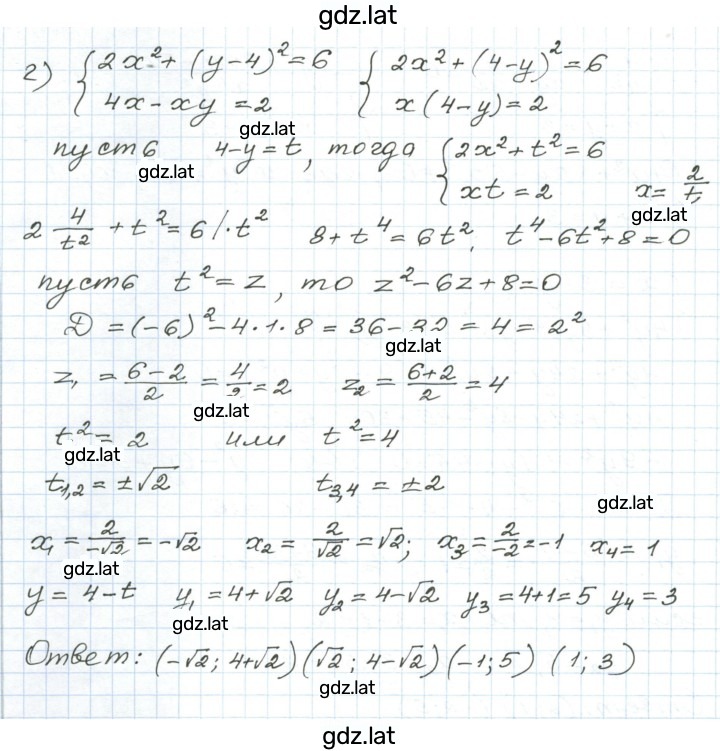 gdz.lat
2) { 2x² + (y-4)² = 6 { 2x² + (4-y)² = 6
4x - xy = 2 x(4-y) = 2
gdz.lat
пусть 4-y = t, тогда { 2x² + t² = 6
gdz.lat
xt = 2 x = 2/t,
gdz.lat
2 4/t² + t² = 6 /·t² 8 + t⁴ = 6t², t⁴ - 6t² + 8 = 0
пусть t² = z, то z² - 6z + 8 = 0
D = (-6)² - 4·1·8 = 36 - 32 = 4 = 2²
gdz.lat
z₁ = (6-2)/2 = 4/2 = 2 z₂ = (6+2)/2 = 4
gdz.lat
t² = 2 или t² = 4
gdz.lat
t₁,₂ = ±√2 t₃,₄ = ±2
gdz.lat
x₁ = 2/(-√2) = -√2 x₂ = 2/√2 = √2; x₃ = 2/(-2) = -1 x₄ = 1
gdz.lat
y = 4-t y₁ = 4+√2 y₂ = 4-√2 y₃ = 4+1 = 5 y₄ = 3
gdz.lat
Ответ: (-√2; 4+√2) (√2; 4-√2) (-1; 5) (1; 3)
gdz.lat
gdz.lat